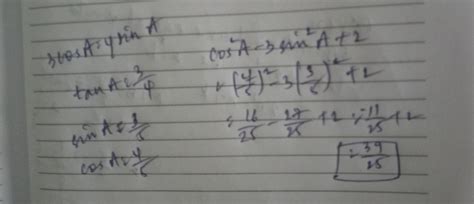 3cosA = 4sinA
tanA = 3/4
sinA = 3/5
cosA = 4/5
cos²A - 3sin²A + 2
= (4/5)² - 3(3/5)² + 2
= 16/25 - 27/25 + 2 = -11/25 + 2
= 39/25